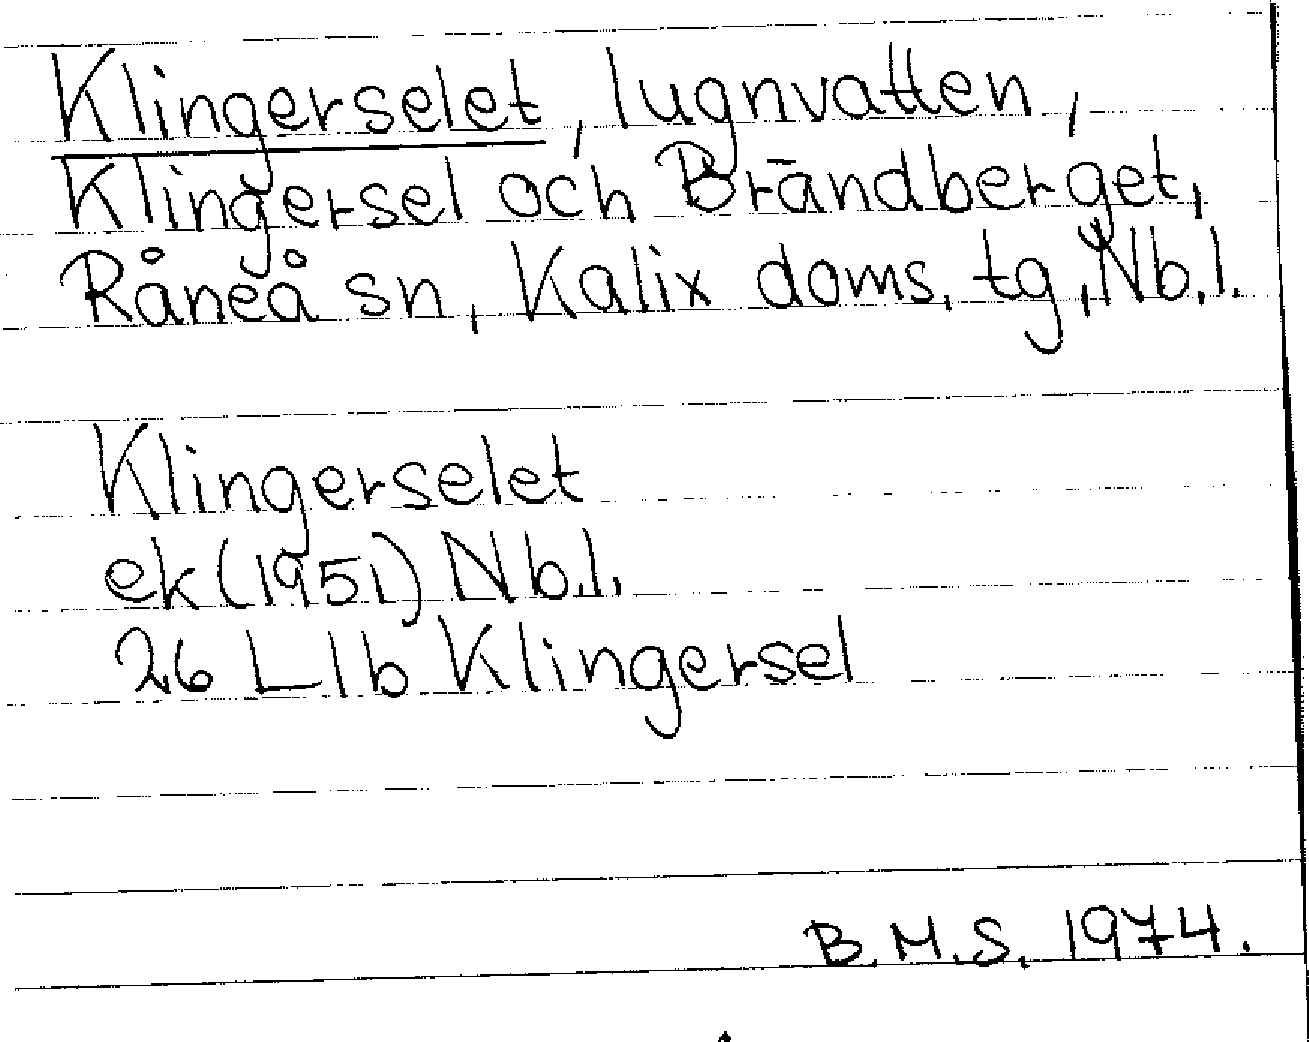 Klingerselet, lugnvatten,
Klingersel och Brändberget,
Råneå sn, Kalix doms. tg, Nb.l.
Klingerselet
ek (1951) Nb.l.
26 L 1b Klingersel
B.M.S. 1974.